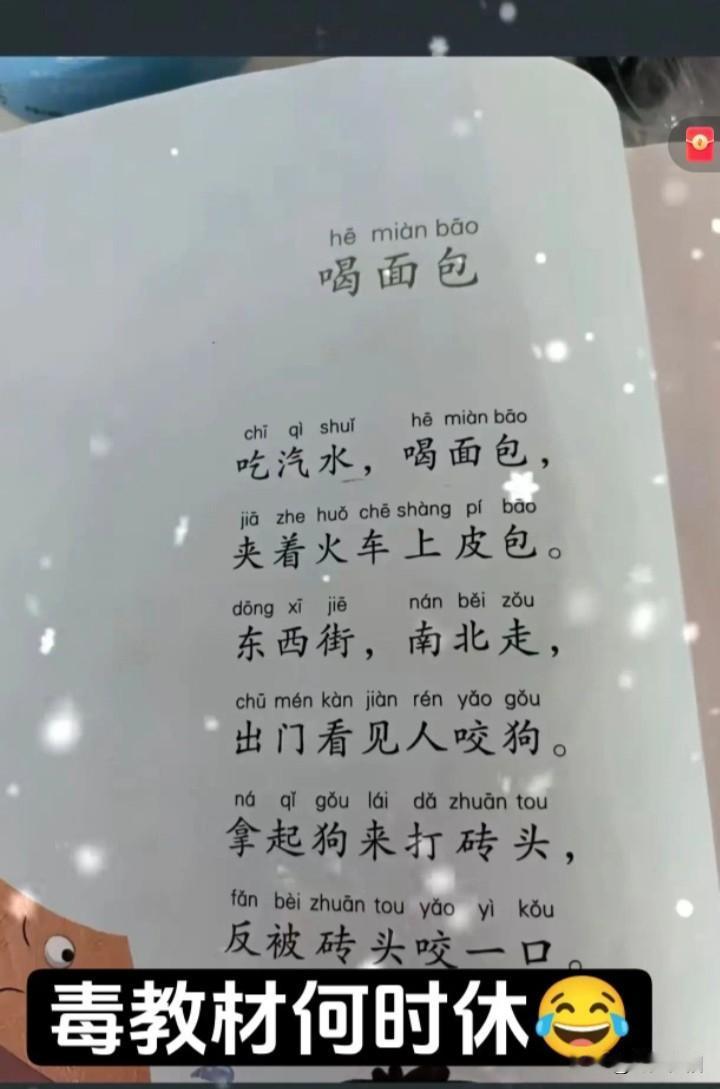 hē miàn bāo
喝面包
chī qì shuǐ hē miàn bāo
吃汽水，喝面包，
jiā zhe huǒ chē shàng pí bāo
夹着火车上皮包。
dōng xī jiē nán běi zǒu
东西街，南北走，
chū mén kàn jiàn rén yǎo gǒu
出门看见人咬狗。
ná qǐ gǒu lái dǎ zhuān tou
拿起狗来打砖头，
fǎn bèi zhuān tou yǎo yì kǒu
反被砖头咬一口。
毒教材何时休😂